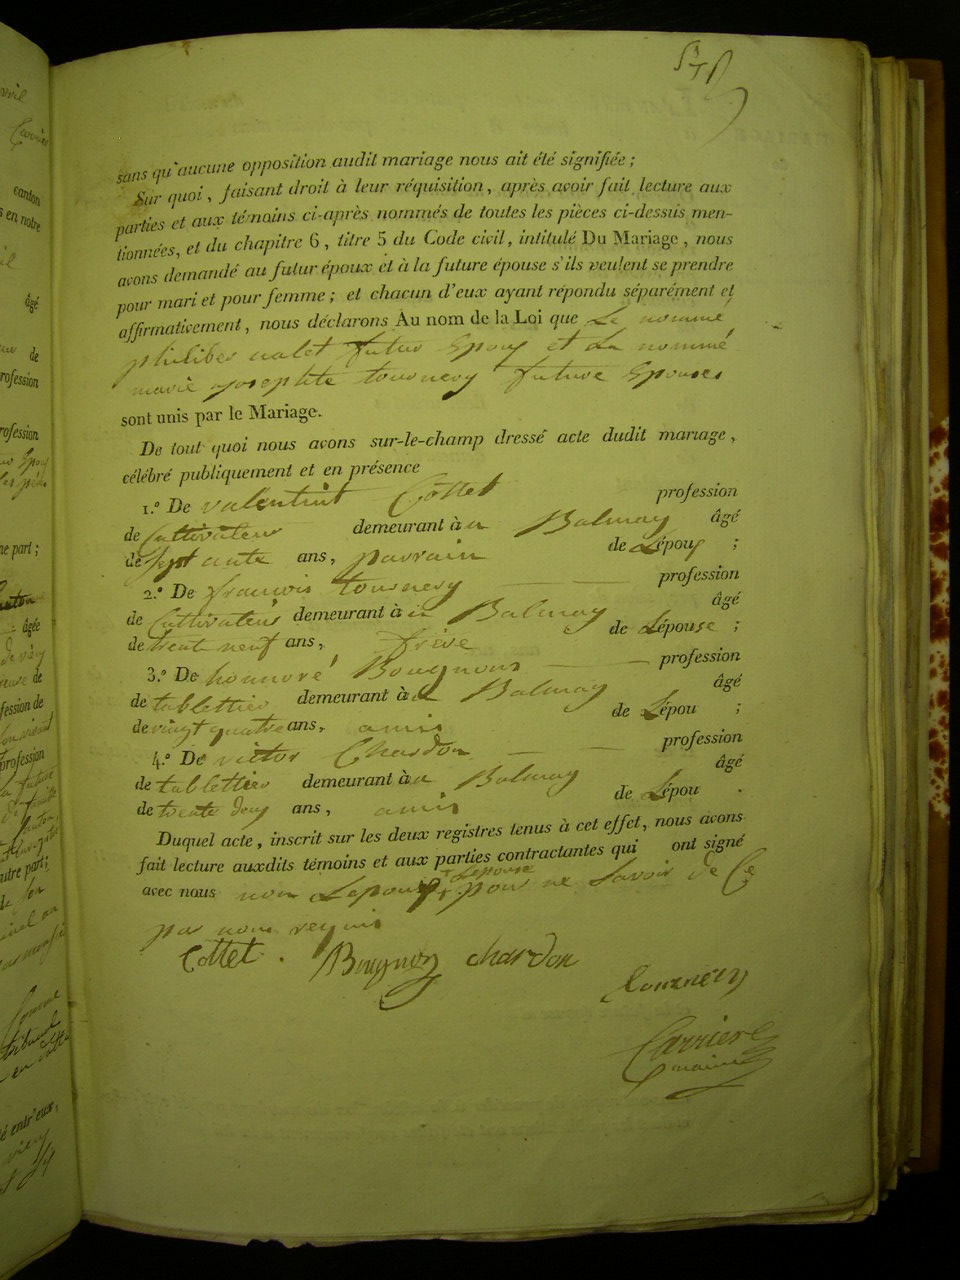 sans qu'aucune opposition audit mariage nous ait été signifiée ;
Sur quoi, faisant droit à leur réquisition, après avoir fait lecture aux
parties et aux témoins ci-après nommés de toutes les pièces ci-dessus men-
tionnées, et du chapitre 6, titre 5 du Code civil, intitulé Du Mariage, nous
avons demandé au futur époux et à la future épouse s'ils veulent se prendre
pour mari et pour femme ; et chacun d'eux ayant répondu séparément et
affirmativement, nous déclarons Au nom de la Loi que Le nommé
philiber nalet futur Epoux et La nommé
marie josephte tournery future Epouses
sont unis par le Mariage.
De tout quoi nous avons sur-le-champ dressé acte dudit mariage,
célébré publiquement et en présence
1.° De valentint Cottet profession
de Cultivateur demeurant à Balmay âgé
de Sept ante ans, parrain de Lépoux ;
2.° De francois tournery profession
de Cultivateur demeurant à Balmay âgé
de trent neuf ans, frère de Lépouse ;
3.° De honnoré Bougnous profession
de tablettier demeurant à Balmay âgé
de vingt quatre ans, amis de Lépou ;
4.° De victor Chardon profession
de tablettier demeurant à Balmay âgé
de trente deux ans, amis de Lépou .
Duquel acte, inscrit sur les deux registres tenus à cet effet, nous avons
fait lecture auxdits témoins et aux parties contractantes qui ont signé
avec nous non Lepoux et Lepouse pour ne Savoir de Ce
par nous requis
Cottet . Bougnon chardon
tournery
Carriere
maire